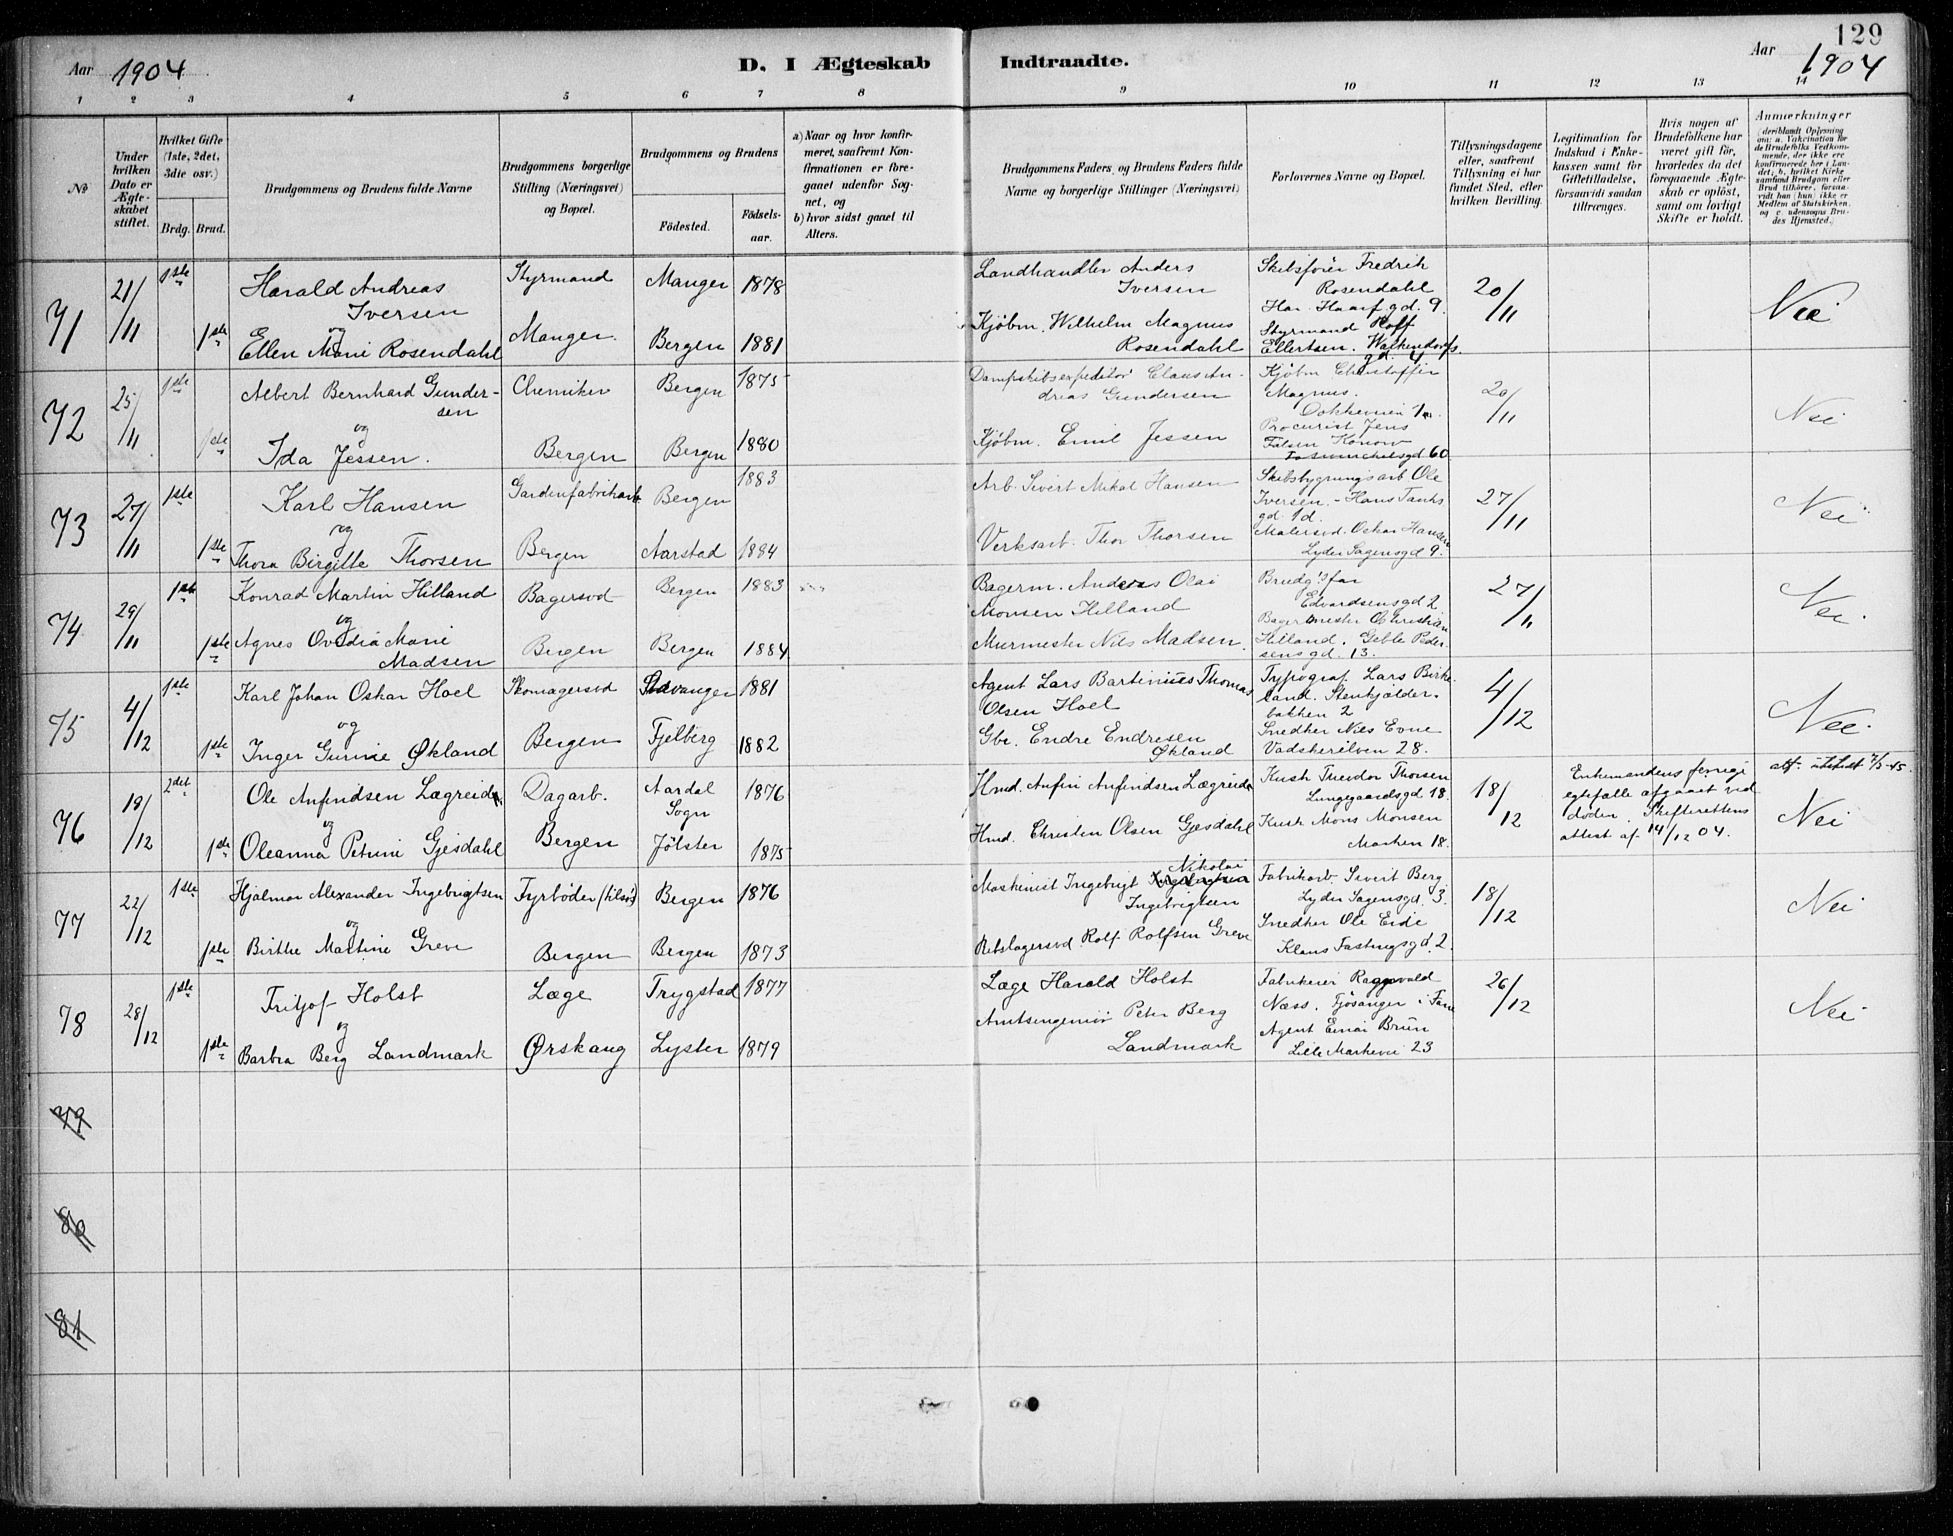 129
Aar 1904
D. I Ægteskab Indtraadte.
Aar 1904
1 2 3 4 5 6 7 8 9 10 11 12 13 14
No
Under hvilken Dato er Ægteskabet stiftet.
Hvilket Gifte (1ste, 2det, 3die osv.)
Brdg. Brud.
Brudgommens og Brudens fulde Navne
Brudgommens borgerlige Stilling (Næringsvei) og Bopæl.
Brudgommens og Brudens
Fødested.
Fødselsaar.
a) Naar og hvor konfirmeret, saafremt Konfirmationen er foregaaet udenfor Sognet, og
b) hvor sidst gaaet til Alters.
Brudgommens Faders og Brudens Faders fulde Navne og borgerlige Stillinger (Næringsvei)
Forlovernes Navne og Bopæl.
Tillysningsdagene eller, saafremt Tillysning ei har fundet Sted, efter hvilken Bevilling.
Legitimation for Indskud i Enkekassen samt for Giftetilladelse, forsaavidt saadan tiltrænges.
Hvis nogen af Brudefolkene har været gift før, hvorledes da det foregaaende Ægteskab er opløst, samt om lovligt Skifte er holdt.
Anmerkninger
(deriblandt Oplysning om: a. Vakcination for de Brudefolks Vedkommende, der ikke ere konfirmerede her i Landet; b. hvilket Kirkesamfund Brudgom eller Brud tilhører, forsaavidt han (hun) ikke er Medlem af Statskirken, og c. udensogns Brudes Hjemsted.)
71 21/11 1ste Harald Andreas Iversen Styrmand Manger 1878
og
1ste Ellen Marie Rosendahl Manger. Bergen 1881
Landhandler Anders Iversen
Kjøbm. Wilhelm Magnus Rosendahl
Skibsfører Fredrik Rosendahl
Har. Haarf.gd. 9.
Styrmand Rolf
Ellertsen. Walkendorfs.
gd. 4
20/11 Nei
72 25/11 1ste Albert Bernhard Gundersen Chemiker Bergen 1875
og
1ste Ida Jessen. Bergen Bergen 1880
Dampskibsexpeditør Claus Andreas Gundersen
Kjøbm. Emil Jessen
Kjøbm. Christoffer
Magnus.
Dokkeveien
Procurist Jens
Falsen Konow
60
20/11 Nei
73 27/11 1ste Karl Hansen Gardenfabrikarb Bergen 1883
og
1ste Thora Birgitte Thorsen Bergen Aarstad 1884
Arb. Sivert Mikal Hansen
Verksarb. Thor Thorsen
Skibsbygningsarb Ole
Iversen. - Hans Tanks
gd. 1d.
Malersvd. Oskar Hansen
Lyder Sagensgd 9.
27/11 Nei
74 29/11 1ste Konrad Martin Hilland Bagersvd Bergen 1883
og
1ste Agnes Ovidia Marie Madsen Bergen Bergen 1884
Bagerm. Anders Olai
Monsen Hilland
Murmester Nils Madsen.
Brudg's far
Edvardsensgd 2
Bagermester Christian
Hilland. Geble Pedersensgd. 13.
27/11 Nei.
75 4/12 1ste Karl Johan Oskar Hoel Skomagersvd Stavanger 1881
og
1ste Inger Gurine Økland Bergen Fjelberg 1882
Agent Lars Bartinius Thomas
Olsen Hoel
Gbr. Endre Endresen
Økland
Typograf Lars Birkeland. Stenkjelderbakken 2
Snedker Nils Evne
Vadskerelven 28.
4/12 Nei.
76 19/12 2det Ole Anfindsen Lægreid Dagarb. Aardal Sogn 1876
og
1ste Oleanna Petrine Gjesdahl Bergen Jølster 1875
Hmd. Anfin Anfindsen Lægreid
Hmd. Christen Olsen Gjesdahl
Kusk Theodor Thorsen
Lungegaardsgd 18.
Kusk Mons Monsen
Marken 18.
18/12
Enkemandens forrige
egtefælle afgaaet ved
døden. Skifterettens
attest af 14/12 04.
att. utstedt 7/5-45.
Nei
77 22/12 1ste Hjalmar Alexander Ingebrigtsen Fyrbøder (tilsøs) Bergen 1876
og
1ste Birthe Martine Greve Bergen Bergen 1873
Nikolai
Maskinist Ingebrigt
Ingebrigtsen
Rebslagersvd. Rolf Rolfsen Greve
Fabrikarb. Sivert Berg
Lyder Sagensgd. 3.
Snedker Ole Eide
Klaus Fastingsgd. 2
18/12 Nei
78 28/12 1ste Fritjof Holst Læge Trygstad 1877
og
1ste Barbra Berg Landmark Ørskaug Lyster 1879
Læge Harald Holst
Amtsingeniør Peter Berg
Landmark
Fabrikeier Ragnvald
Næss. Fjøsanger i Fane
Agent Einar Brun
Lille Markevei 23
26/12 Nei
79
80
81